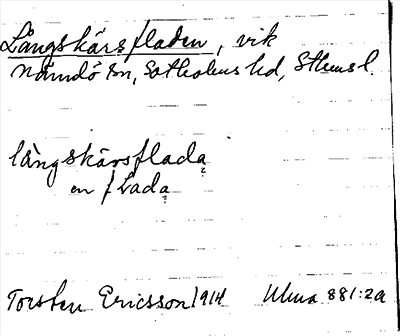 Långskärsfladen, vik
Nämdö sn, Sotholms hd, Sthms l.
långskärsflada
en flada
Torsten Ericsson 1914 Ulma 881:2a